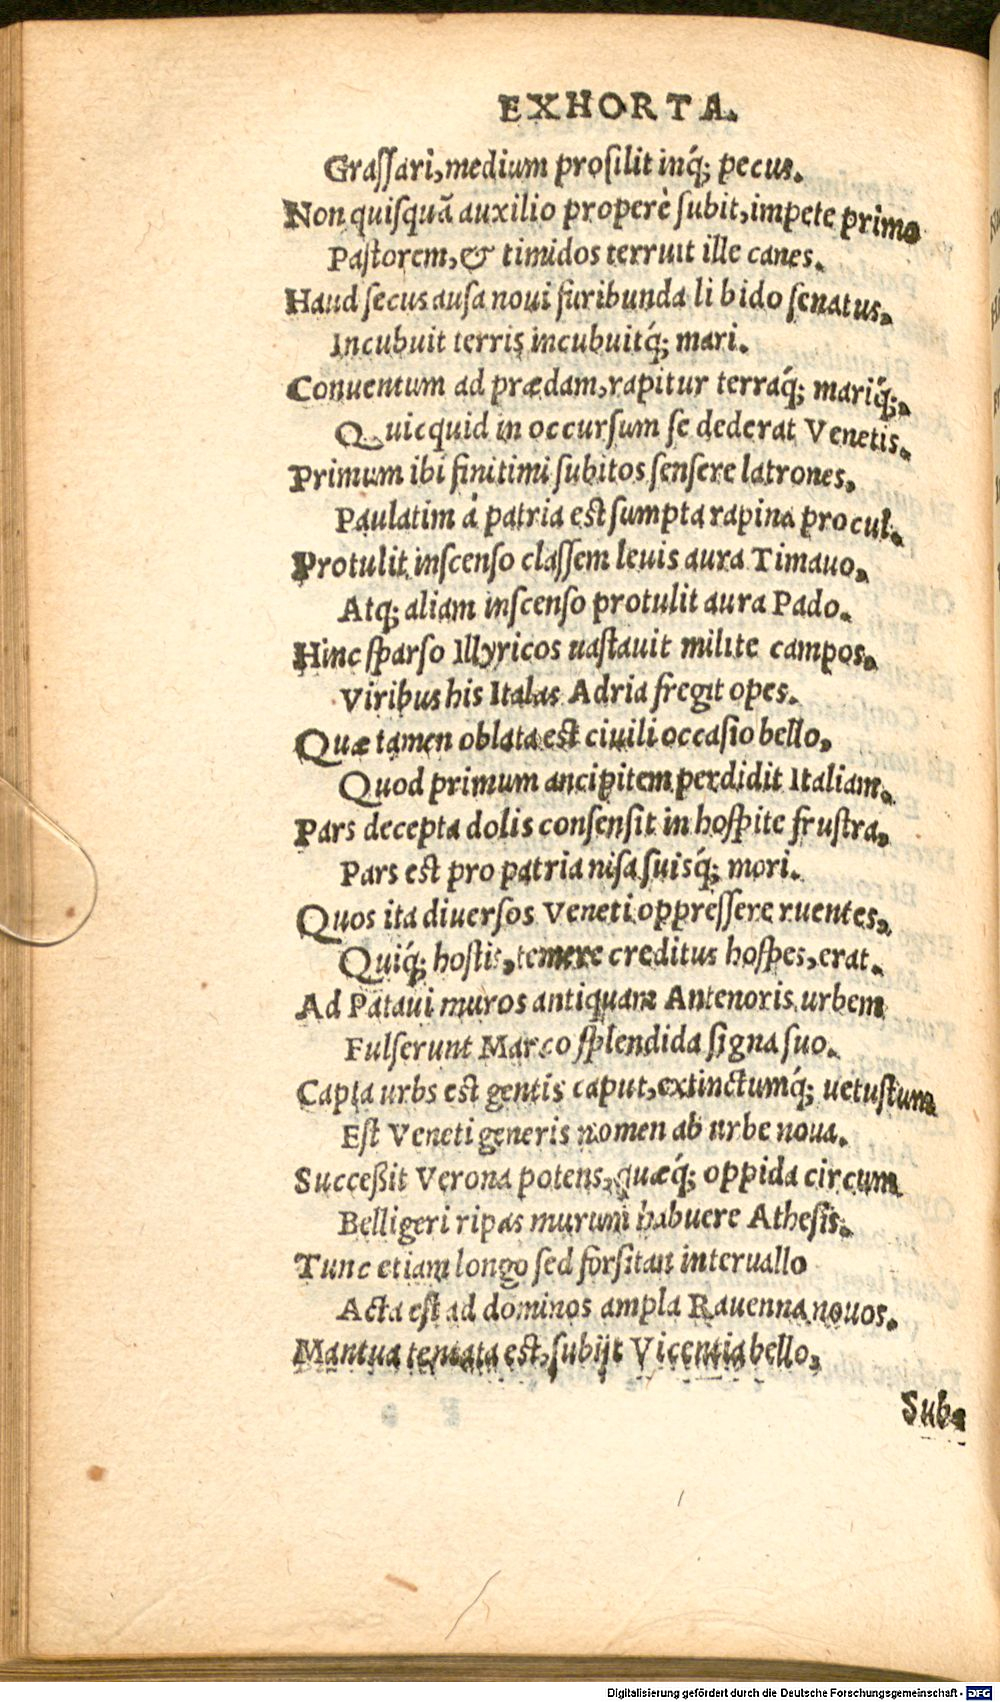 EXHORTA.
Graſſari, medium proſilit inq́; pecus.
Non quiſquã auxilio properè ſubit, impete primo
Paſtorem, & timidos terruit ille canes.
Haud ſecus auſa noui furibunda libido ſenatus,
Incubuit terris incubuitq́; mari.
Conuentum ad prædam, rapitur terraq́; mariq́;,
Quicquid in occurſum ſe dederat Venetis.
Primum ibi finitimi ſubitos ſenſere latrones,
Paulatim á patria eſt ſumpta rapina procul.
Protulit inſcenſo claſſem leuis aura Timauo,
Atq; aliam inſcenſo protulit aura Pado.
Hinc ſparſo Illyricos uaſtauit milite campos,
Viribus his Italas Adria fregit opes.
Quæ tamen oblata eſt ciuili occaſio bello,
Quod primum ancipitem perdidit Italiam.
Pars decepta dolis conſenſit in hoſpite fruſtra,
Pars eſt pro patria niſa ſuisq́; mori.
Quos ita diuerſos Veneti oppreſſere ruentes,
Quiq́; hoſtis, temere creditus hoſpes, erat.
Ad Pataui muros antiquam Antenoris urbem
Fulſerunt Marco ſplendida ſigna ſuo.
Capta urbs eſt gentis caput, extinctumq́; uetuſtum
Eſt Veneti generis nomen ab urbe noua.
Succeßit Verona potens, quæq́; oppida circum
Belligeri ripas murum habuere Atheſis.
Tunc etiam longo ſed forſitan interuallo
Acta eſt ad dominos ampla Rauenna nouos.
Mantua tentata eſt, ſubijt Vicentia bello,
Sub-
Digitalisierung gefördert durch die Deutsche Forschungsgemeinschaft - DFG